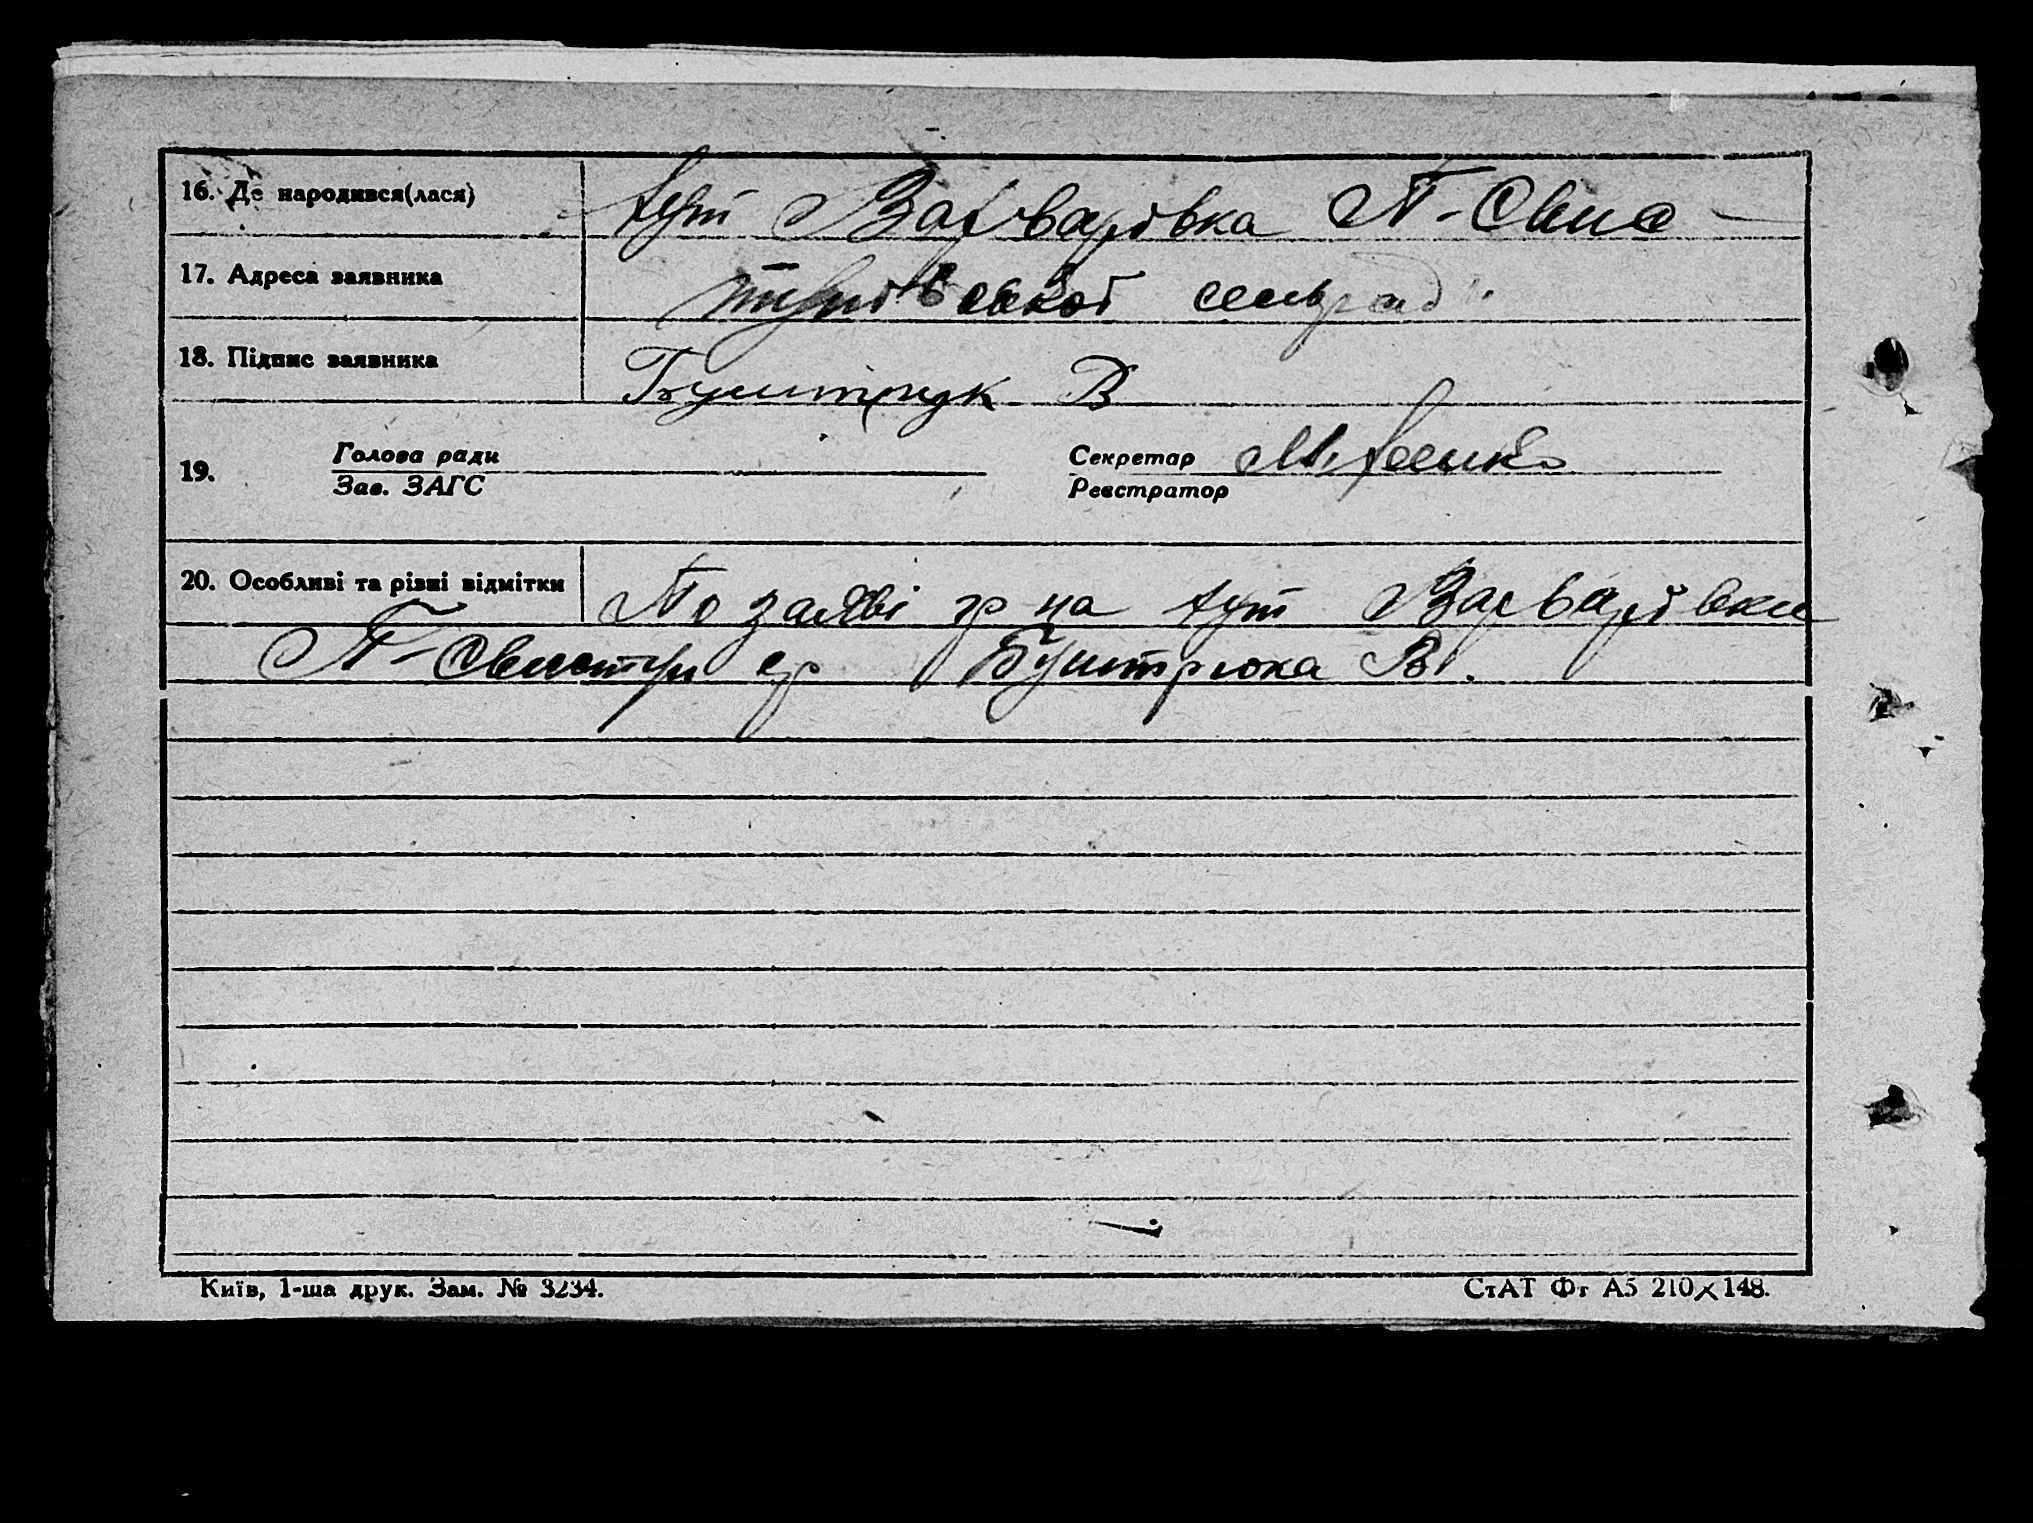 16. Де народився(лася) хут Варварівка П-Свис
17. Адреса заявника сільради
18. Підпис заявника В
Голова ради Секретар
19.
Зав. ЗАГС Реєстратор
20. Особливі та різні відмітки По заяві гр на хут Варварівки
П- гр Буштрюка В.
Київ, 1-ша друк. Зам. № 3234. СтАТ Фт А5 210×148.